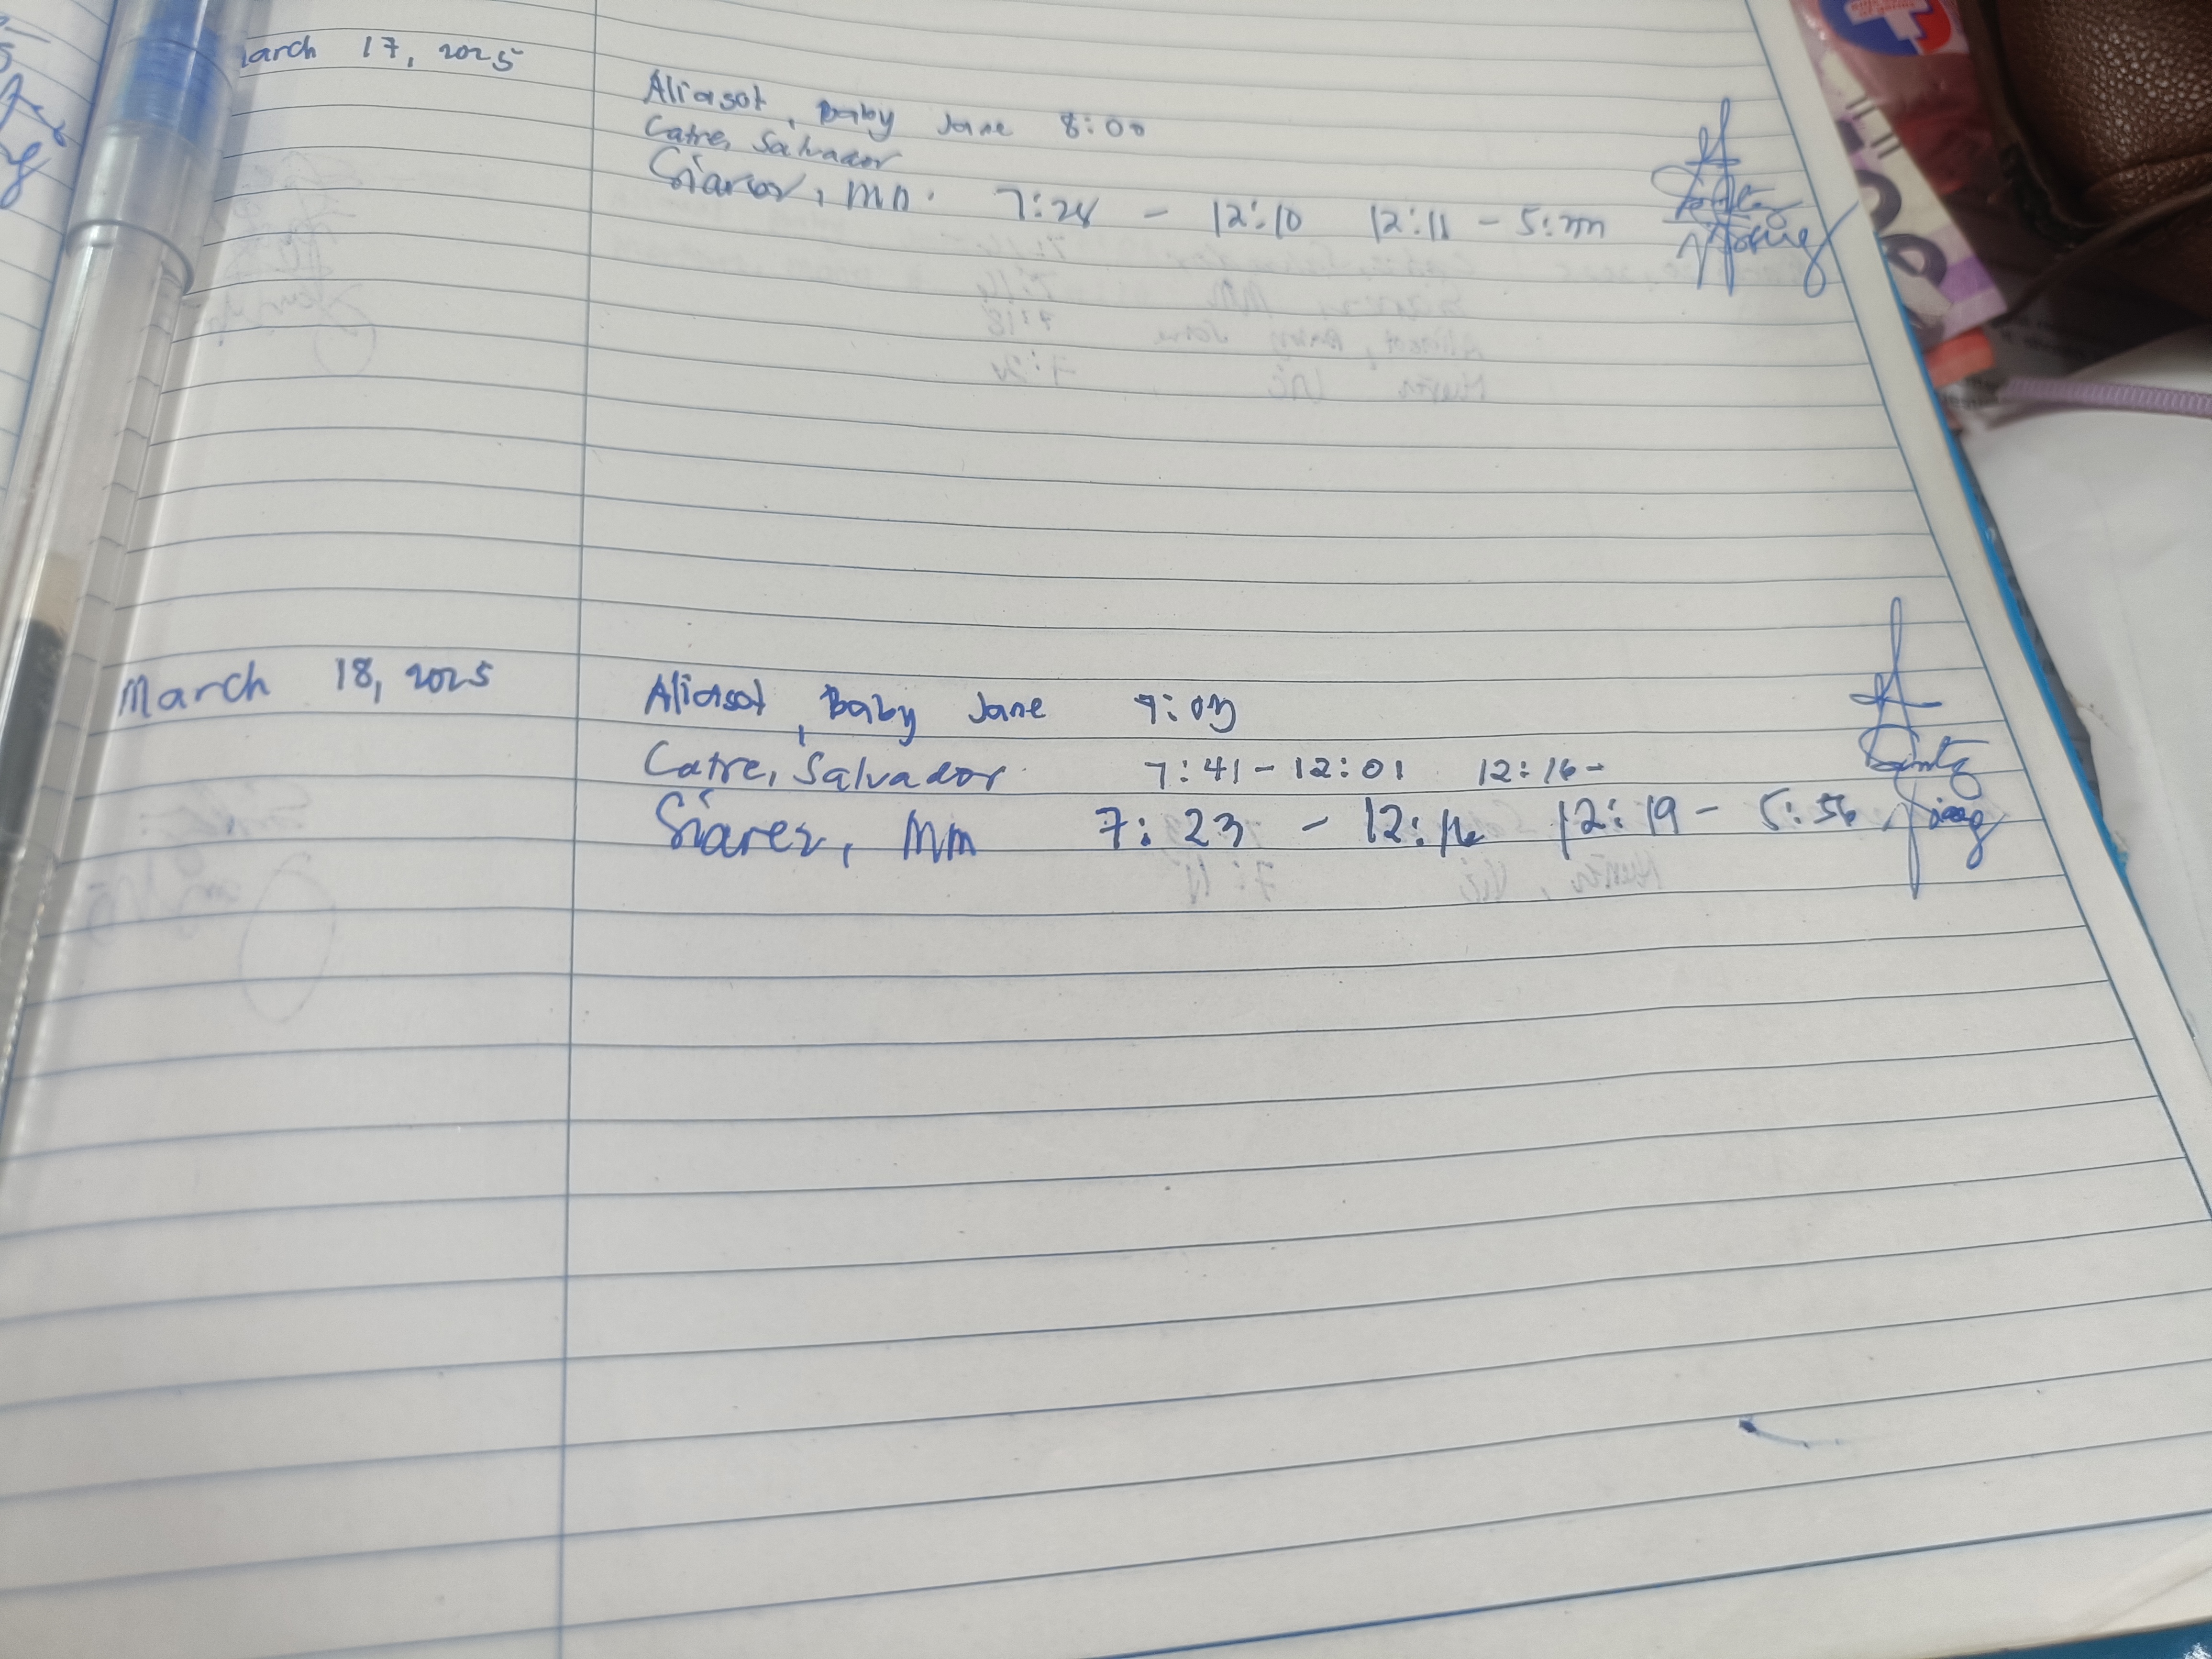 arch 17, 2025
Aliasot, Baby Jane 8:00
Catre, Salvador
Siarez, MM. 7:28 - 12:10 12:11 - 5:
March 18, 2025
Aliasot, Baby Jane 7:03
Catre, Salvador 7:41 - 12:01 12:16 -
Siarez, MM 7:23 - 12:16 12:19 - 5:56